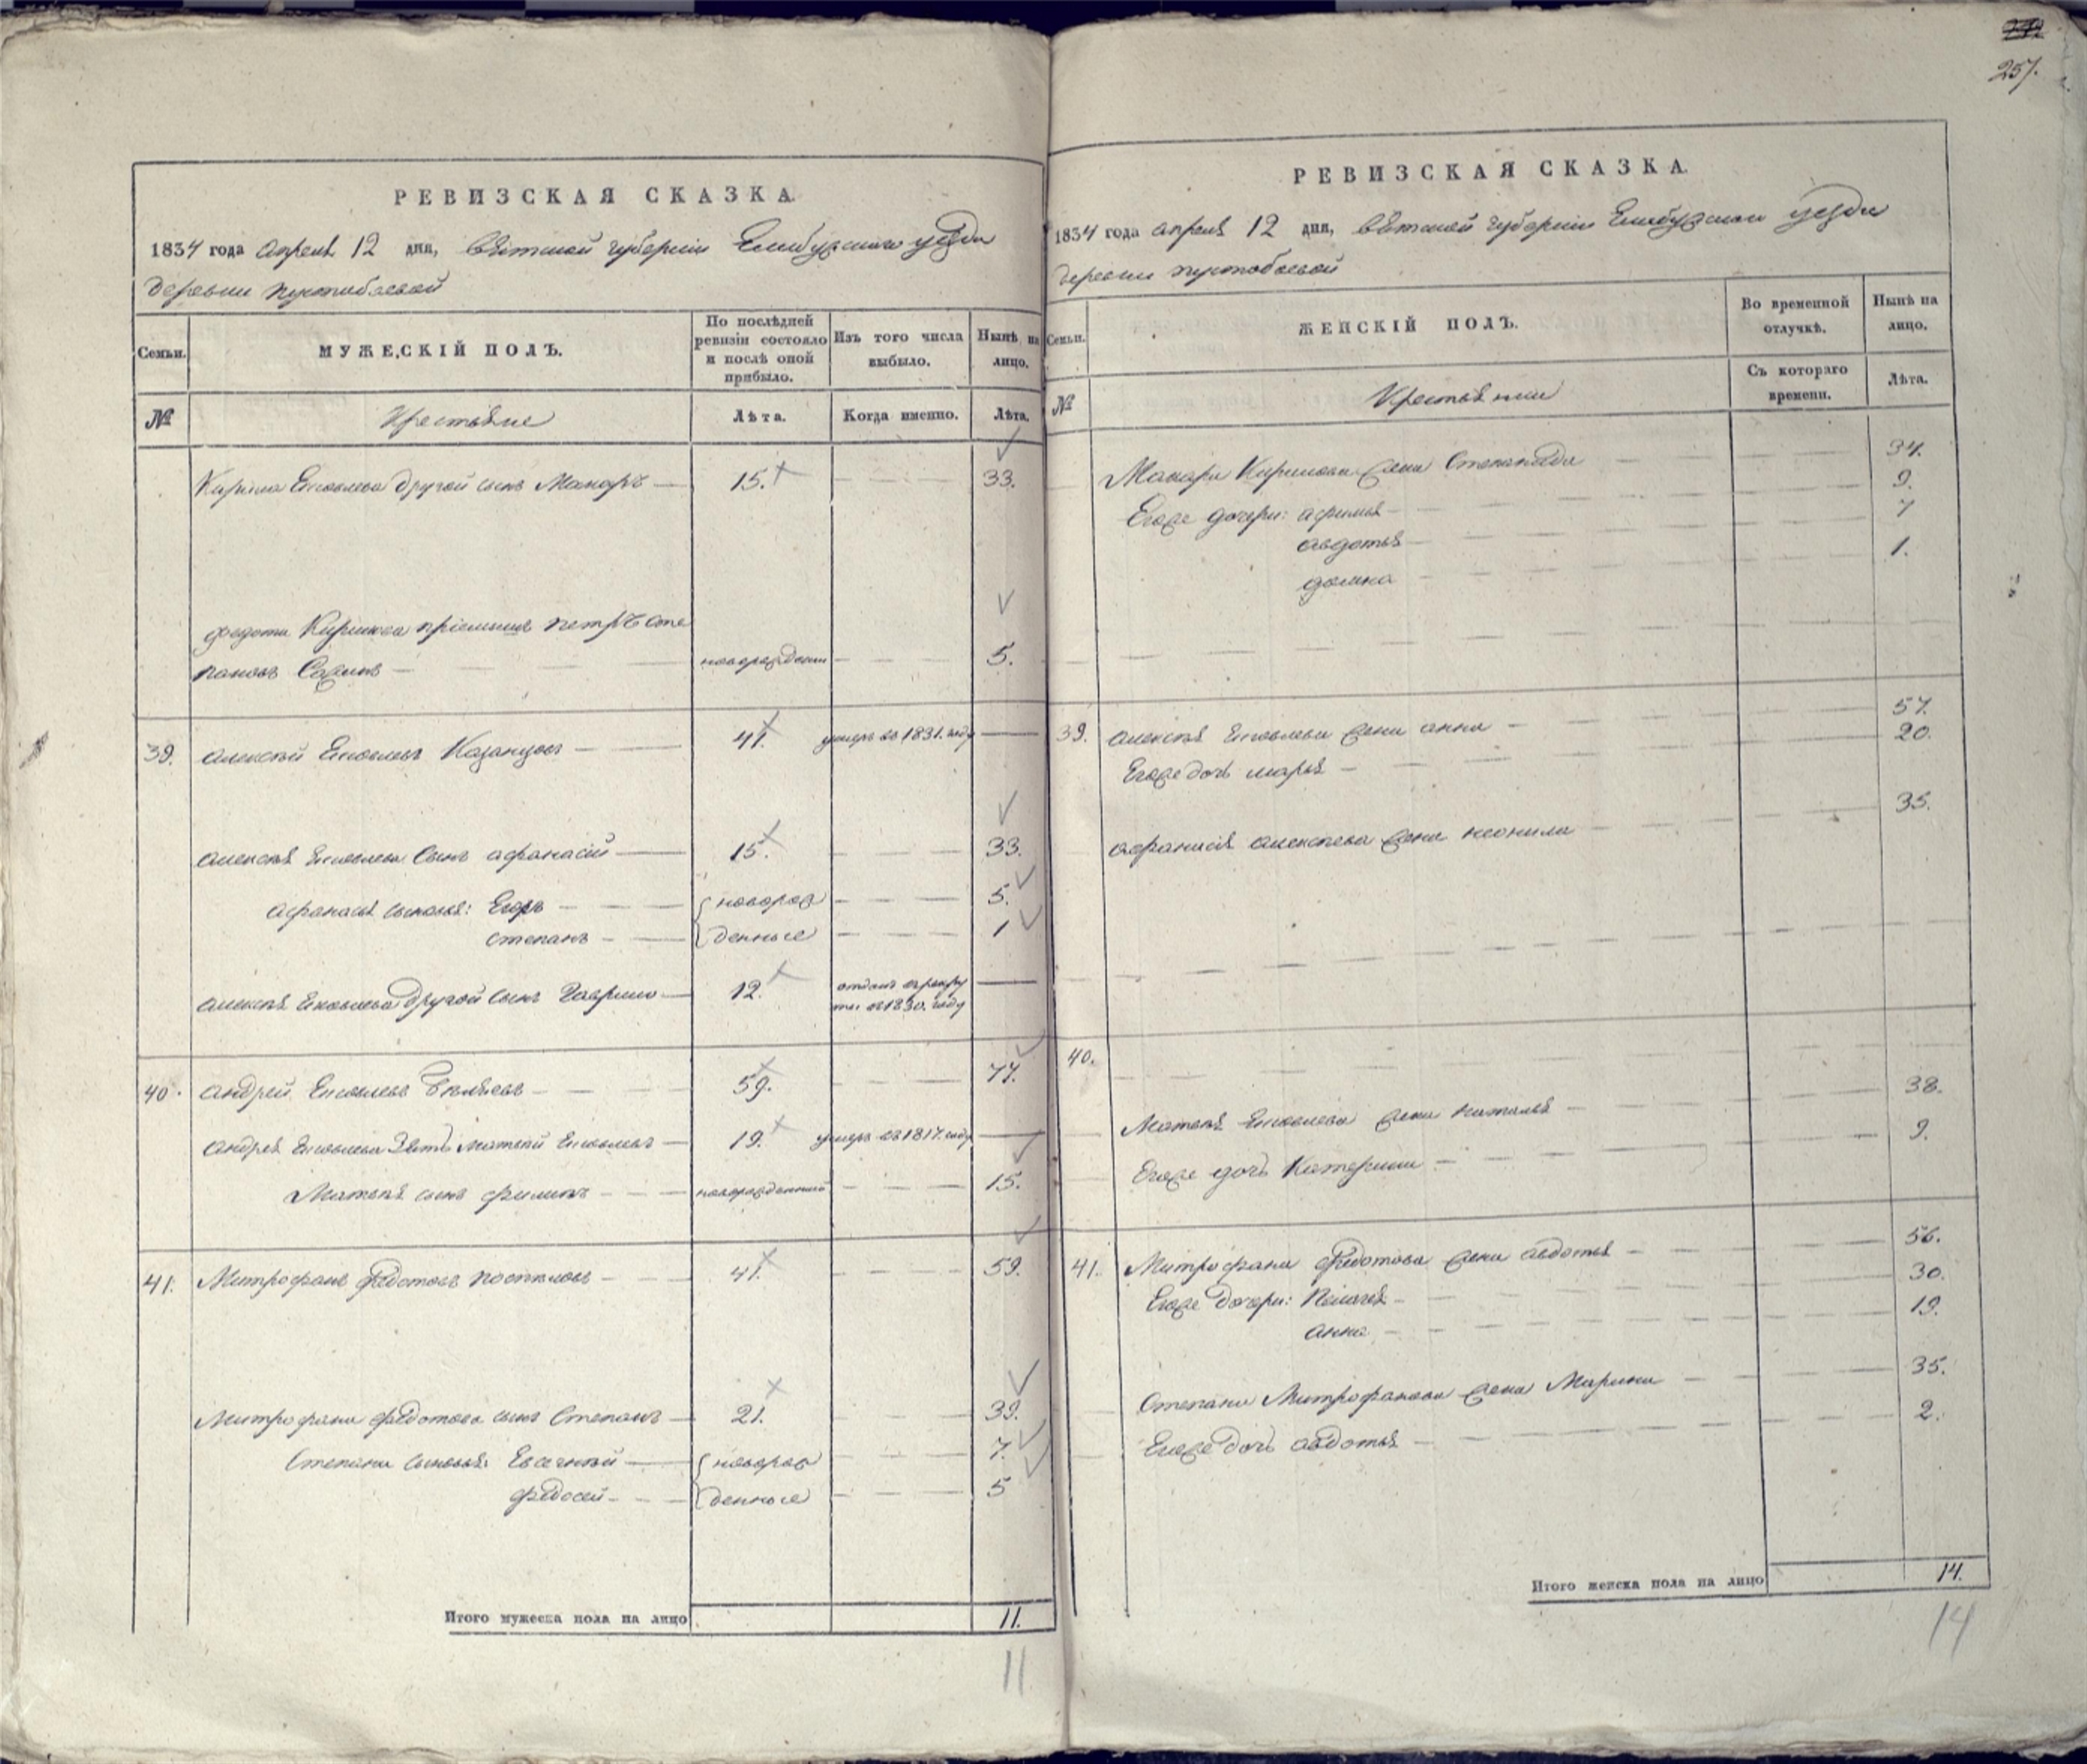 257.
РЕВИЗСКАЯ СКАЗКА.
1834 года апреля 12 дня, Вятской губернии Елабужского уезда
деревни пустобаевой
Семьи.
МУЖЕСКІЙ ПОЛЪ.
По послѣдней ревизіи состояло и послѣ оной прибыло.
Изъ того числа выбыло.
Нынѣ на лицо.
№
Крестьяне
Лѣта.
Когда именно.
Лѣта.
Кирила Яковлева другой сынъ Макаръ 15. 33.
федота Кирилова пріемышъ петръ сте
пановъ новорожденн 5.
39. алексѣй Яковлевъ Казанцовъ 41. умеръ въ 1831. году
алексѣя Яковлева сынъ афанасій 15. 33.
афанасья сыновья: Егоръ новорож 5.
степанъ денные 1
алексѣя Яковлева другой сынъ Гаврило 12. отданъ в рекру
ты въ 1830. году
40. андрей Яковлевъ 59. 77.
андрея Яковлева зять матвѣй Яковлевъ 19. умеръ въ 1817. году
Матвѣя сынъ филипъ новорожденный 15.
41. Митрофанъ федотовъ 41. 59.
Митрофана федотова сынъ Степанъ 21. 39.
Степана сыновья: Евсегнѣй новорож 7.
федосей денные 5
Итого мужеска пола на лицо 11.
11
РЕВИЗСКАЯ СКАЗКА.
1834 года апреля 12 дня, Вятской губернии Елабужского уезда
деревни пустобаевой
Семьи.
ЖЕНСКІЙ ПОЛЪ.
Во временной отлучкѣ.
Нынѣ на лицо.
№
Крестьянки
Съ котораго времени.
Лѣта.
Макара Кирилова жена Степанида 34.
Егоже дочери: афимья 9.
авдотья 7
домна 1.
39. алексѣя Яковлева жена анна 57.
Егоже дочь марья 20.
афанасія алексѣева жена неонила 35.
40.
Матвѣя Яковлева жена наталья 38.
Егоже дочь Катерина 9.
41. Митрофана федотова жена авдотья 56.
Егоже дочери: Пелагея 30.
анна 19.
Степана Митрофанова жена Марина 35.
Егоже дочь авдотья 2.
Итого женска пола на лицо 14.
14